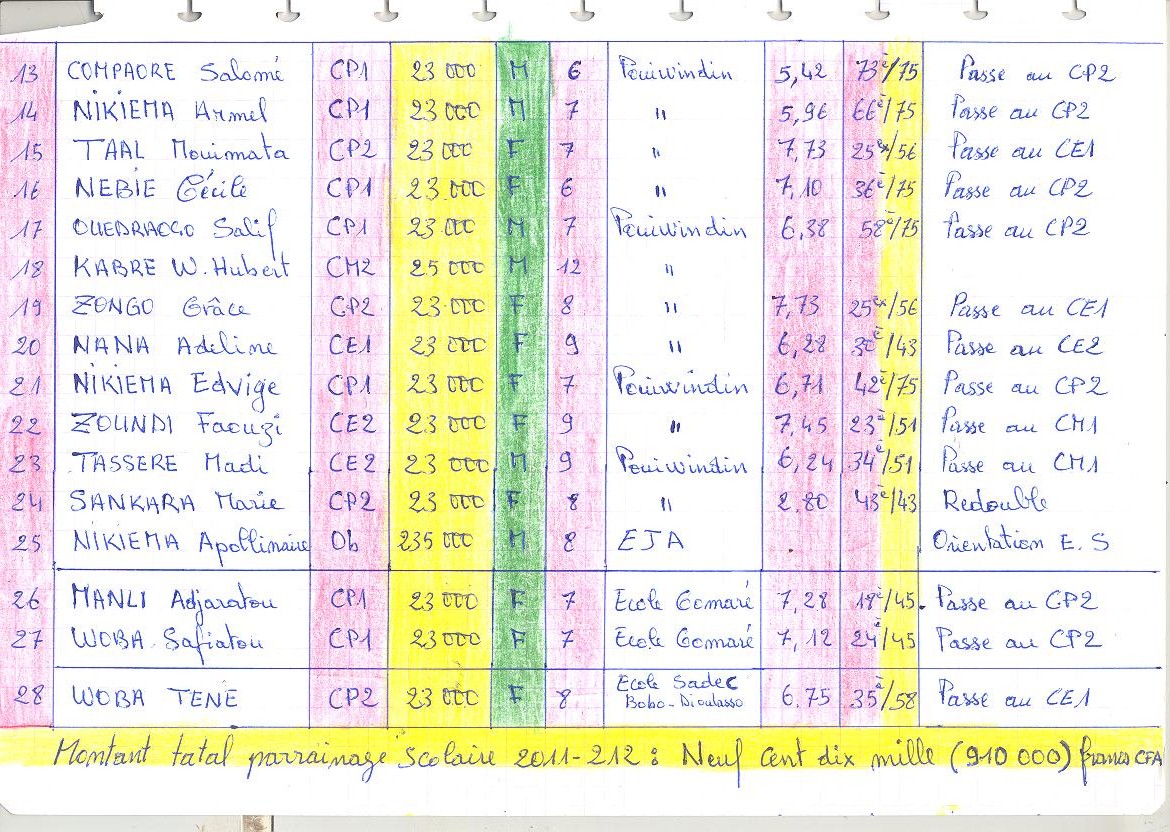 13 COMPAORE Salomé CP1 23 000 M 6 Pouiwindin 5,42 73è/75 Passe au CP2
14 NIKIEMA Armel CP1 23 000 M 7 " 5,96 66è/75 Passe au CP2
15 TAAL Mouimata CP2 23 000 F 7 " 7,73 25ex/56 Passe au CE1
16 NEBIE Cécile CP1 23 000 F 6 " 7,10 36è/75 Passe au CP2
17 OUEDRAOGO Salif CP1 23 000 M 7 Pouiwindin 6,38 58è/75 Passe au CP2
18 KABRE W. Hubert CM2 25 000 M 12 "
19 ZONGO Grâce CP2 23 000 F 8 " 7,73 25ex/56 Passe au CE1
20 NANA Adeline CE1 23 000 F 9 " 6,28 30è/43 Passe au CE2
21 NIKIEMA Edvige CP1 23 000 F 7 Pouiwindin 6,71 42è/75 Passe au CP2
22 ZOUNDI Faouzi CE2 23 000 F 9 " 7,45 23è/51 Passe au CM1
23 TASSERE Madi CE2 23 000 M 9 Pouiwindin 6,24 34è/51 Passe au CM1
24 SANKARA Marie CP2 23 000 F 8 " 2.80 43è/43 Redouble
25 NIKIEMA Apollinaire Ob 235 000 M 8 EJA Orientation E.S
26 MANLI Adjaratou CP1 23 000 F 7 Ecole Gomaré 7,28 18è/45. Passe au CP2
27 WOBA Safiatou CP1 23 000 F 7 Ecole Gomaré 7,12 24è/45 Passe au CP2
28 WOBA TENE CP2 23 000 F 8 Ecole Sadec Bobo-Dioulasso 6.75 35è/58 Passe au CE1
Montant tatal parrainage Scolaire 2011-212 : Neuf cent dix mille (910 000) francs CFA